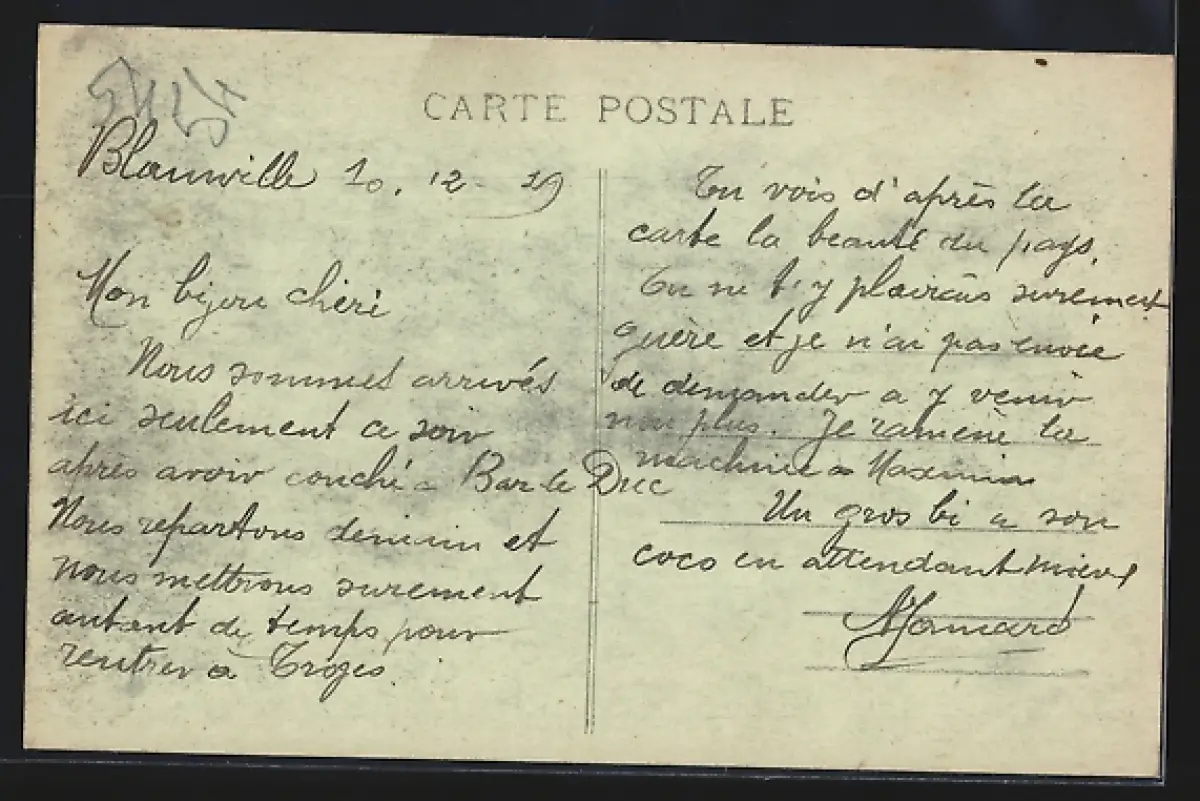 CARTE POSTALE
54
54
Blainville 10. 12 - 29
Mon bijou chéri
Nous sommes arrivés
ici seulement ce soir
après avoir couché à Bar le Duc
Nous repartons demain et
nous mettrons surement
autant de temps pour
rentrer à Troyes.
Tu vois d'après la
carte la beauté du pays.
Tu ne t'y plairais surement
guère et je n'ai pas envie
de demander a y venir
non plus. Je ramène la
machine a
Un gros bi a son
coco en attendant mieux